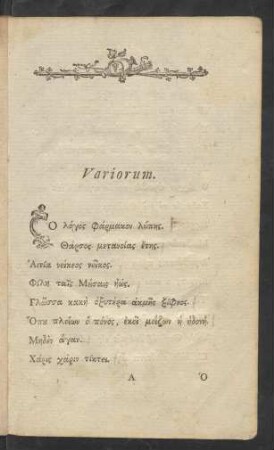 Variorum.
Ὁ λόγος φάρμακον λύπης.
Θάρσος μετανοίας ἔτης.
Αἰτία νείκεος νῶκος.
Φίλη ταῖς Μούσαις ἠώς.
Γλῶσσα κακὴ ὀξυτέρα ἀκμῆς ξίφεος.
Ὅπυ πλείων ὁ πόνος, ἐκεῖ μείζων ἡ ἡδονή.
Μηδὲν ἄγαν.
Χάρις χάριν τίκτει.
A Ὁ